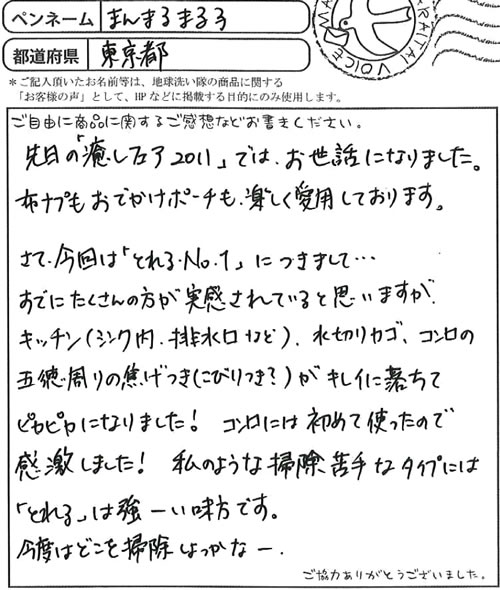 ペンネーム まんまるまる3
MA
ARAITAI VOICE
都道府県 東京都
＊ご記入頂いたお名前等は、地球洗い隊の商品に関する
「お客様の声」として、HPなどに掲載する目的にのみ使用します。
ご自由に商品に関するご感想などお書きください。
先日の「癒しフェア2011」では、お世話になりました。
布ナプもおでかけポーチも、楽しく愛用しております。
さて、今回は「とれるNo.1」につきまして…
すでにたくさんの方が実感されていると思いますが、
キッチン(シンク内、排水口など)、水切りカゴ、コンロの
五徳周りの焦げつき(こびりつき?)がキレイに落ちて
ピカピカになりました! コンロには初めて使ったので
感激しました! 私のような掃除苦手なタイプには
「とれる」は強ーい味方です。
今度はどこを掃除しよっかなー.
ご協力ありがとうございました。